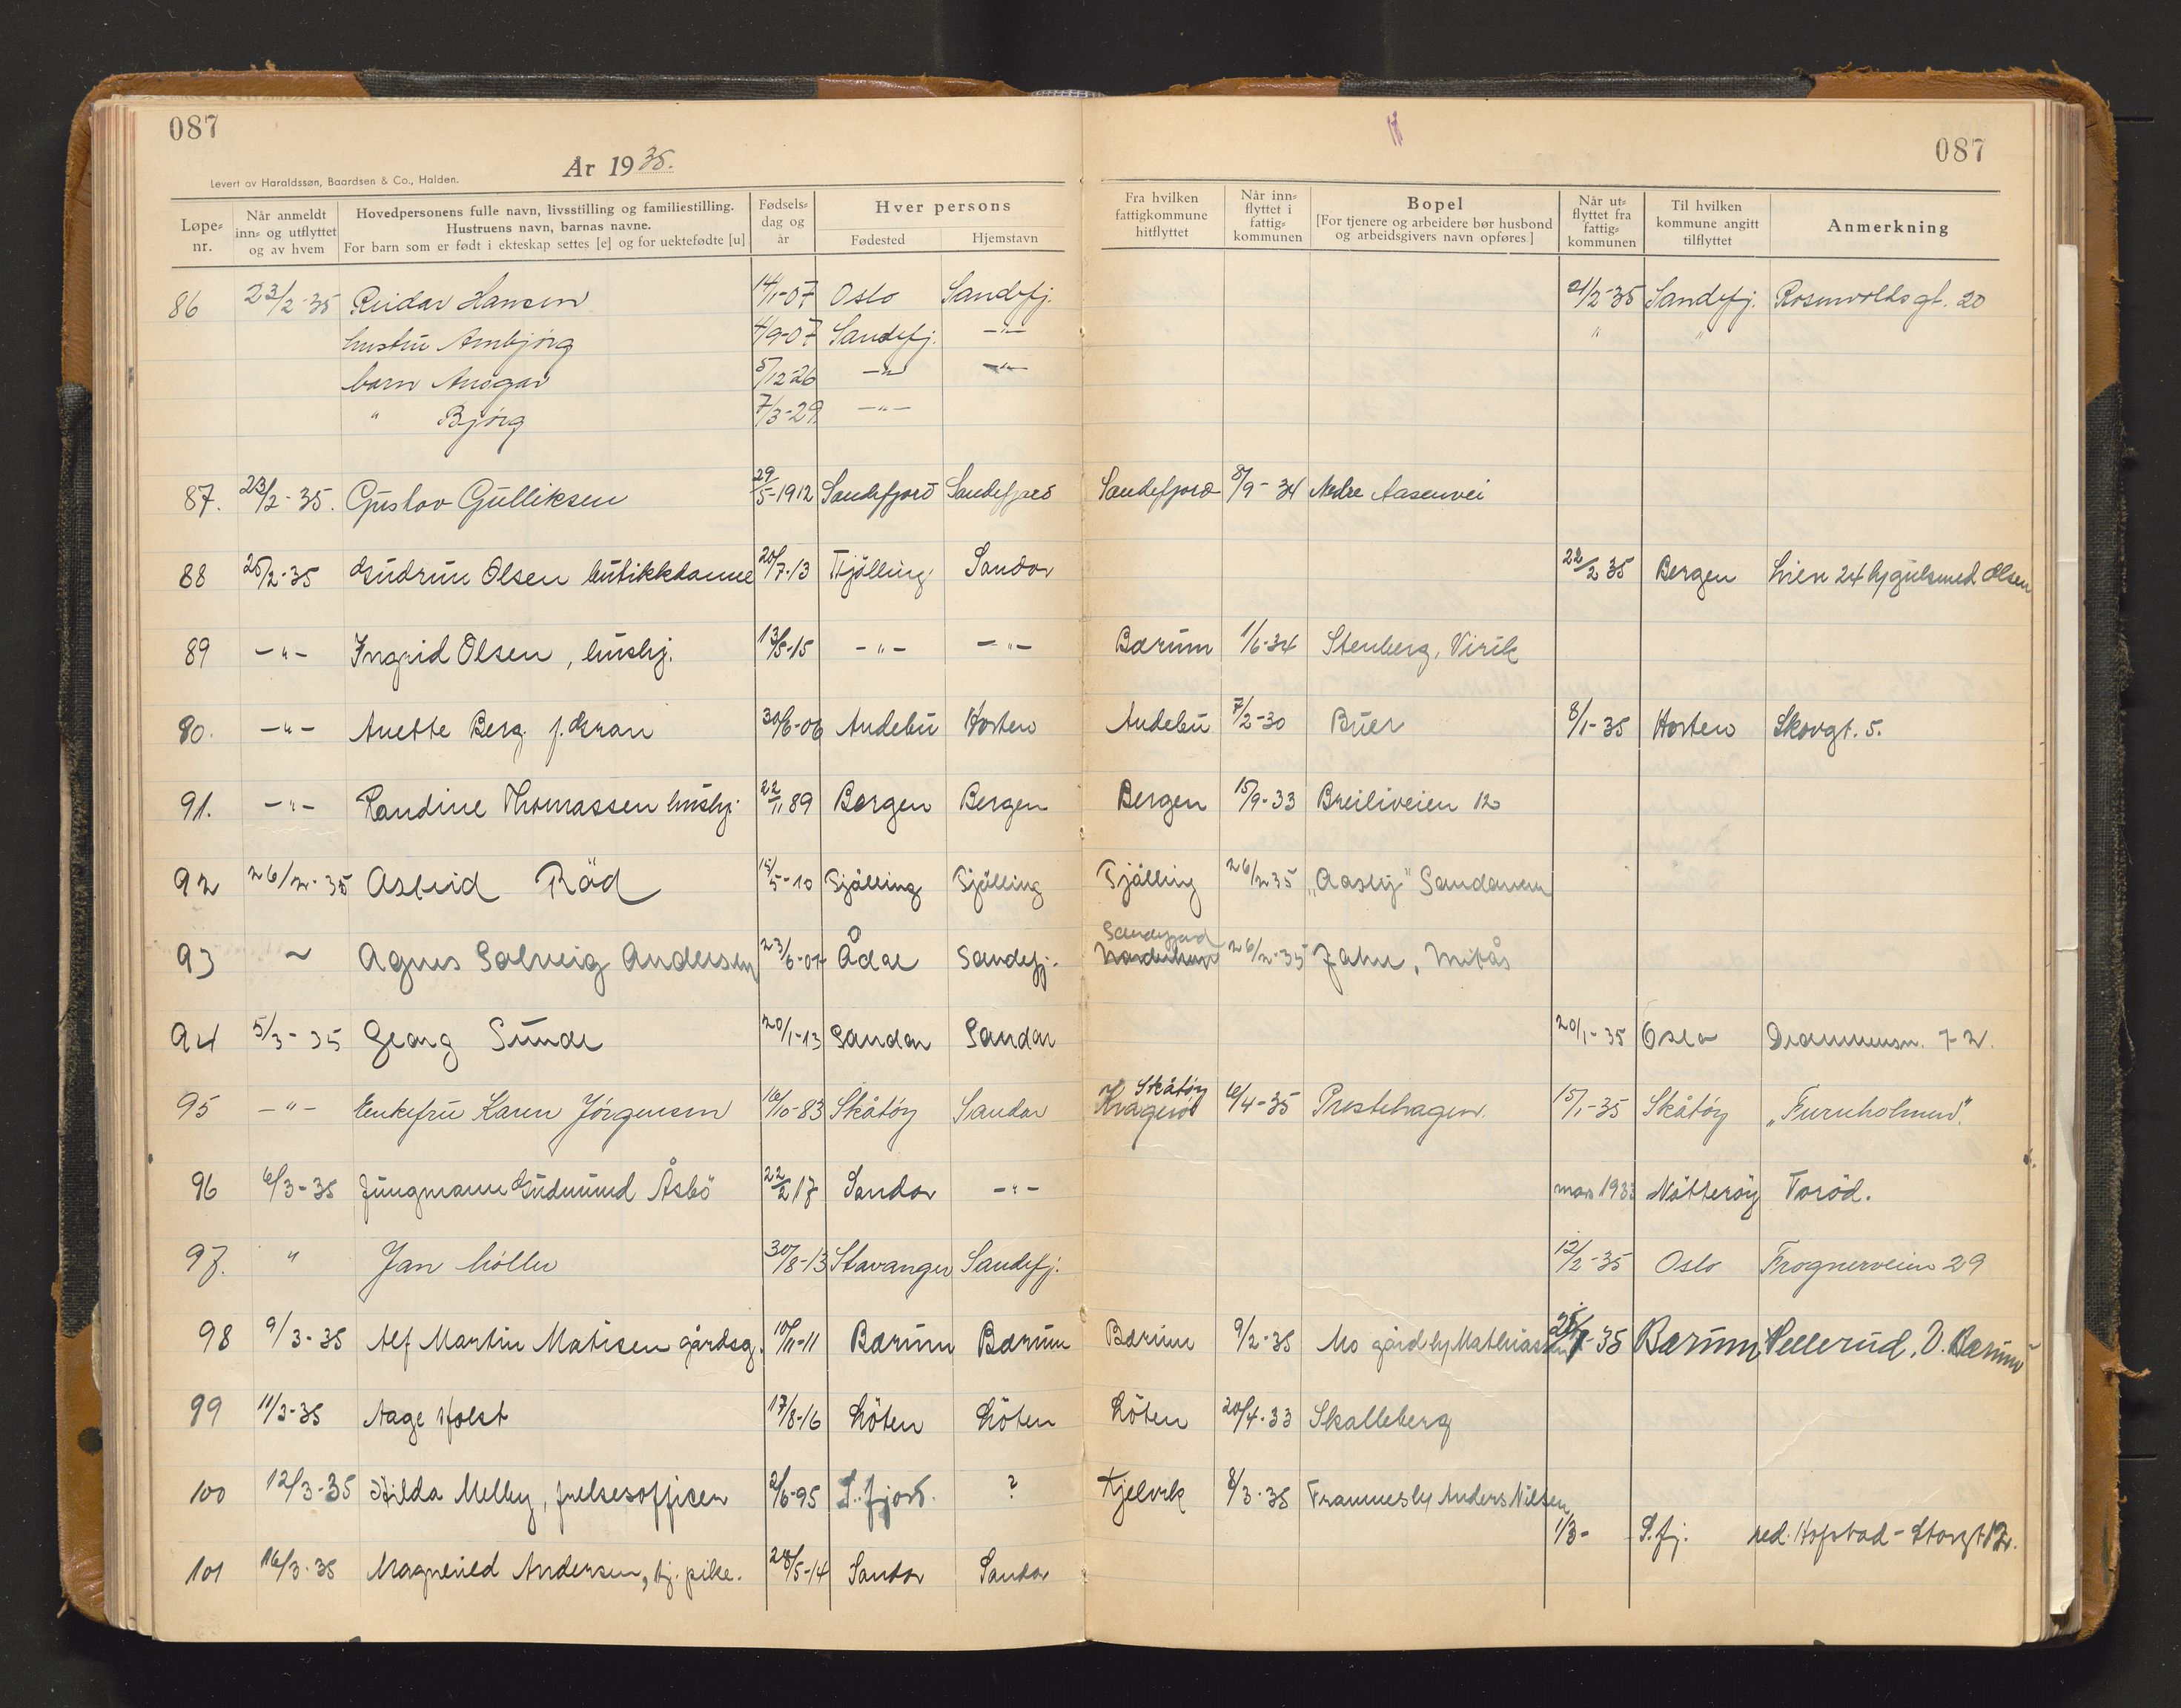 087
År 1935.
Levert av Haraldssøn, Baardsen & Co., Halden.
087
Løpe-nr. Når anmeldt inn- og utflyttet og av hvem Hovedpersonens fulle navn, livsstilling og familiestilling. Hustruens navn, barnas navne. For barn som er født i ekteskap settes [e] og for uektefødte [u] Fødsels-dag og år Hver persons Fødested Hjemstavn Fra hvilken fattigkommune hitflyttet Når inn-flyttet i fattig-kommunen Bopel [For tjenere og arbeidere bør husbond og arbeidsgivers navn opføres] Når ut-flyttet fra fattig-kommunen Til hvilken kommune angitt tilflyttet Anmerkning
86 23/2-35 Reidar Hansen 14/1-07 Oslo Sandefj. 21/2-35 Sandefj. Rosenvoldsgt. 20
hustru Arnbjørg 4/9-07 Sandefj. -"- " "
barn Ansgar 5/12-26 -"- -"-
" Bjørg 7/3-29 -"-
87. 23/2-35. Gustav Gulliksen 29/5-1912 Sandefjord Sandefjord Sandefjord 8/9-34 Nedre Aasenvei
88 25/2-35 Gudrun Olsen butikkdame 20/7-13 Tjölling Sandar 22/2 35 Bergen Lien 24 hj gulsmed Olsen
89 -"- Ingrid Olsen, hushj. 13/8-15 -"- -"- Bærum 1/6-34 Stenberg, Virik
90. -"- Anette Berg f. Gran 30/6-06 Andebu Horten Andebu 7/2-30 Buer 8/1-35 Horten Skovgt. 5.
91. -"- Randine Thomassen hushj. 22/11 89 Bergen Bergen Bergen 15/9-33 Breiliveien 12
92 26/2-35 Astrid Röd 15/5-10 Tjölling Tjölling Tjölling 26/2 35 "Aasly" Sandaveien
Sandefjord
93 ~ Agnes Solveig Andersen 23/6-07 Ådal Sandefj. 26/2-35 Jahre, Mikås
94 5/3-35 Georg Sunde 20/1-13 Sandar Sandar 20/1-35 Oslo Drammensv. 72.
Skåtöy
95 -"- Enkefru Karen Jörgensen 16/10-83 Skåtöy Sandar Kragerö 6/4-35 Prestehagen. 15/1-35 Skåtöy "Furuholmen".
96 6/3-35 Jungmann Gudmund Åsbö 22/2 17 Sandar -"- mars 1933 Nötteröy Toröd.
97. " Jan Möller 30/8-13 Stavanger Sandefj. 12/2-35 Oslo Frognerveien 29
98 9/3-35 Alf Martin Matisen gårdsg. 10/11-11 Bærum Bærum Bærum 9/2-35 Mo gård hj Mathiassen 25/7-35 Bærum Hellerud, V. Bærum
99 11/3-35 Aage Holst 17/8-16 Löten Löten Löten 20/4-33 Skalleberg
100 12/3-35 Hilda Melby, frelsesofficer 2/6-95 S.fjord. ? Kjelvik 8/3-35 Framnes hj Anders Nilsen
1/3- S.fj. ned. Hofstad - Storgt 12.
101 16/3-35 Magnhild Andersen, tj. pike. 28/5-14 Sandar Sandar